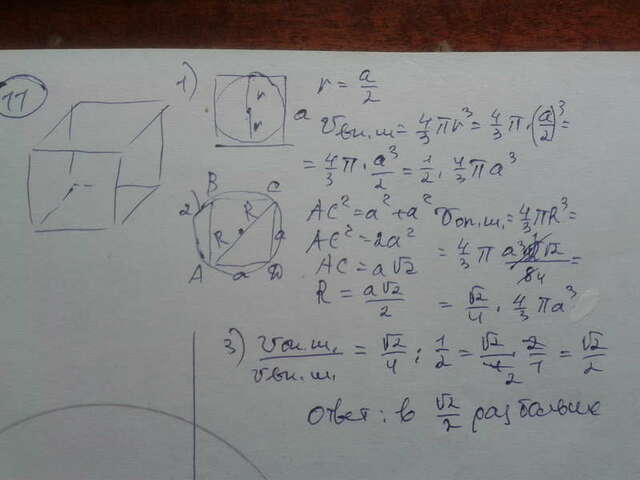 11
1) r = a/2
r
r
a
Vвп.ш. = 4/3 πr³ = 4/3 π·(a/2)³ =
= 4/3 π · a³/2 = 1/2 · 4/3 πa³
2) B C
R R
A a D
a
AC² = a² + a²
AC² = 2a²
AC = a√2
R = a√2/2
Vоп.ш. = 4/3 πR³ =
= 4/3 π a³ √2/4 =
= √2/4 · 4/3 πa³
3) Vоп.ш./Vвп.ш. = √2/4 : 1/2 = √2/4 · 2/1 = √2/2
Ответ: в √2/2 раз больше